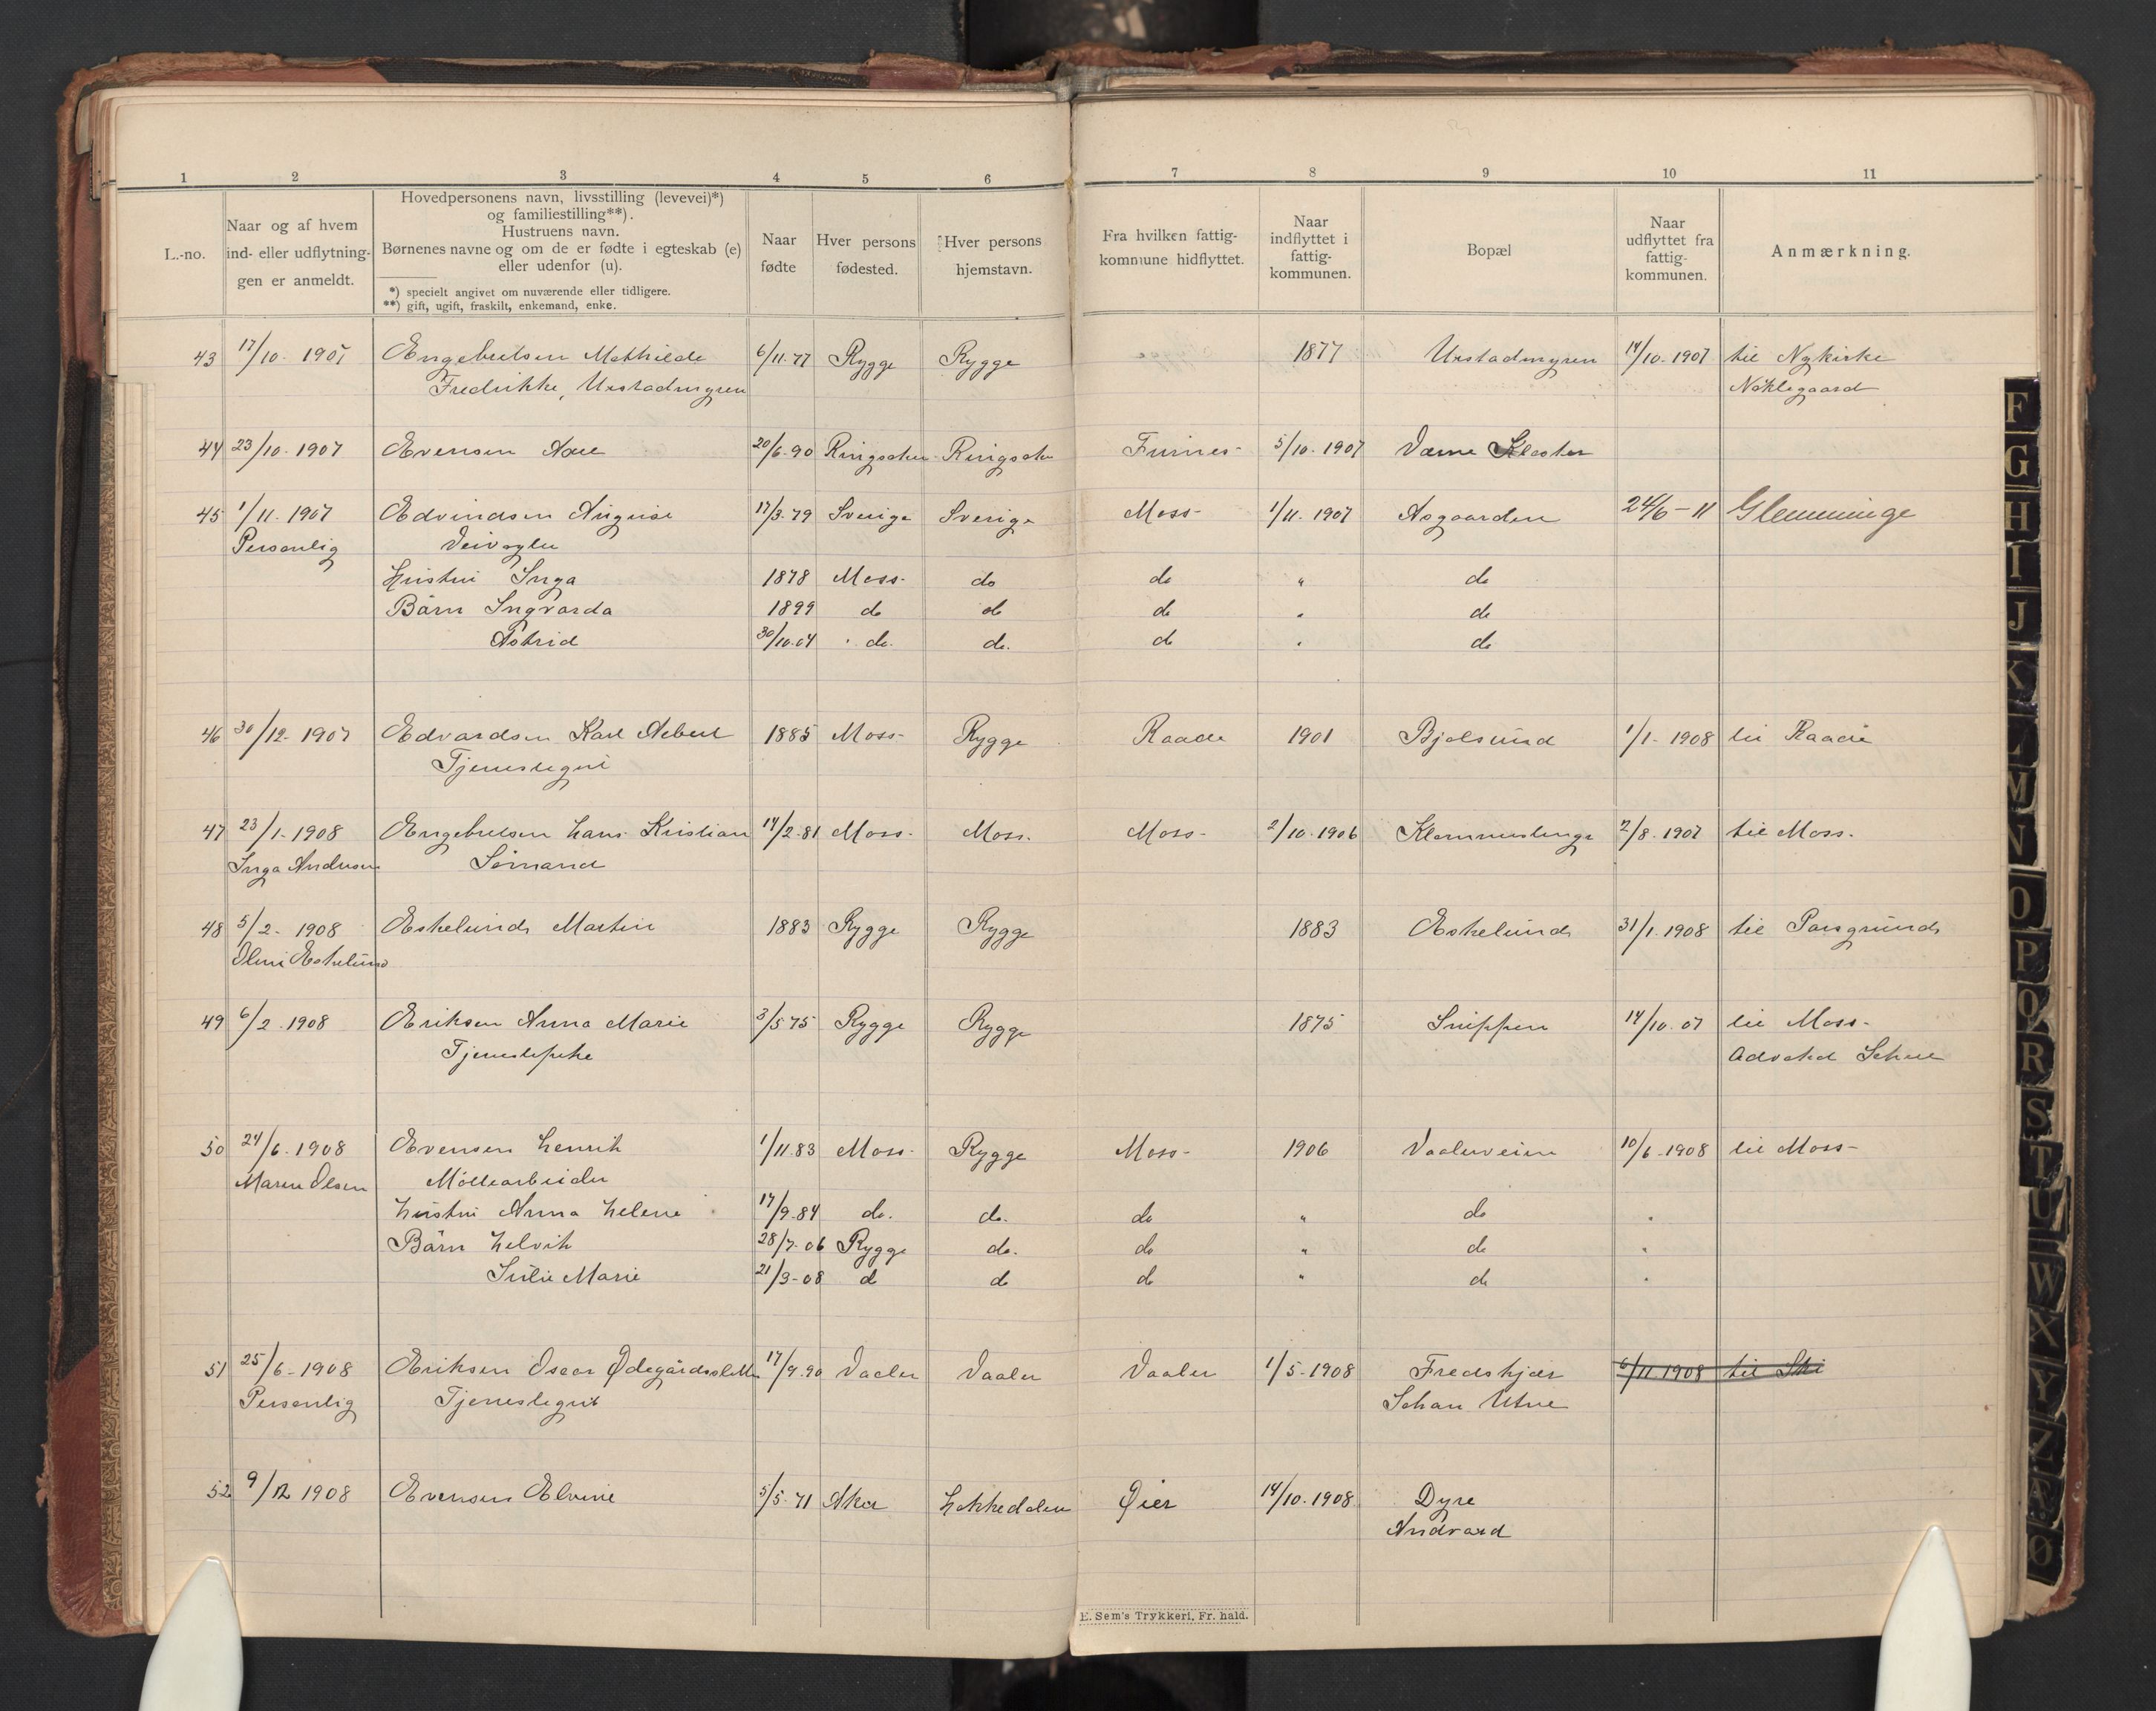 1 2 3 4 5 6 7 8 9 10 11
L.-no.
Naar og af hvem
ind- eller udflytnin-
gen er anmeldt.
Hovedpersonens navn, livsstilling (levevei)*)
og familiestilling**).
Hustruens navn.
Børnenes navne og om de er fødte i egteskab (e)
eller udenfor (u).
*) specielt angivet om nuværende eller tidligere.
**) gift, ugift, fraskilt, enkemand, enke.
Naar
fødte
Hver persons
fødested.
Hver persons
hjemstavn.
Fra hvilken fattig-
kommune hidflyttet.
Naar
indflyttet i
fattig-
kommunen.
Bopæl
Naar
udflyttet fra
fattig-
kommunen.
Anmærkning.
43 17/10. 1907 Engebretsen Mathilde 6/11.77 Rygge Rygge 1877 Urstadmyren 14/10. 1907 til Nykirke
Fredrikke, Urstadmyren Nøklegaard
44 23/10. 1907 Evensen 20/6.90 Ringsaker Ringsaker Furnes 5/10. 1907 Værne Kloster
45 1/11. 1907 Edvindsen August 17/3.79 Sverige Sverige Moss 1/11. 1907 Asgaarden 24/6-11 Glemminge
Personlig Veivogter
Hustru Inga 1878 Moss do do " do
Børn Ingvarda 1899 do do do " do
Astrid 30/10.04 do. do. do " do
46 30/12. 1907 Edvardsen Karl Albert 1885 Moss Rygge Raade 1901 Bjølsund 1/1. 1908 til Raade
Tjenestegut
47 23/1. 1908 Engebretsen Hans Kristian 14/2.81 Moss Moss. Moss 2/10. 1906 Klommestenge 2/8. 1907 til Moss.
Inga Andersen Sømand
48 5/2. 1908 Eskelund Martin 1883 Rygge Rygge 1883 Eskelund 31/1. 1908 til Porsgrund
Oline Eskelund
49 6/2. 1908 Eriksen Anna Marie 3/5 75 Rygge Rygge 1875 Snippen 14/10. 07 til Moss
Tjenestepike Advokat
50 24/6. 1908 Evensen Henrik 1/11.83 Moss Rygge Moss 1906 Vaalerveien 10/6. 1908 til Moss
Maren Olsen Møllearbeider
Hustru Anna Helene 17/9.84 do. do. do " do "
Børn Helvik 28/7.06 Rygge do. do " do "
Julie Marie 21/3-08 d do do " do "
51 25/6. 1908 Eriksen Oscar Ødegårdssletten 17/9.90 Vaaler Vaaler Vaaler 1/5. 1908 Fredskjær 6/11 1908 til Ski
Personlig Tjenestegut Johan Utne
52 9/12 1908 Evensen Elvine 5/5.71 Aker Hakkedalen Øier 14/10. 1908 Dyre
Andvord
E. Sem's Trykkeri, Fr. hald.
F
G
H
I
J
K
L
M
N
O
P
Q
R
S
T
U
W
X
Y
Z
Æ
Ø